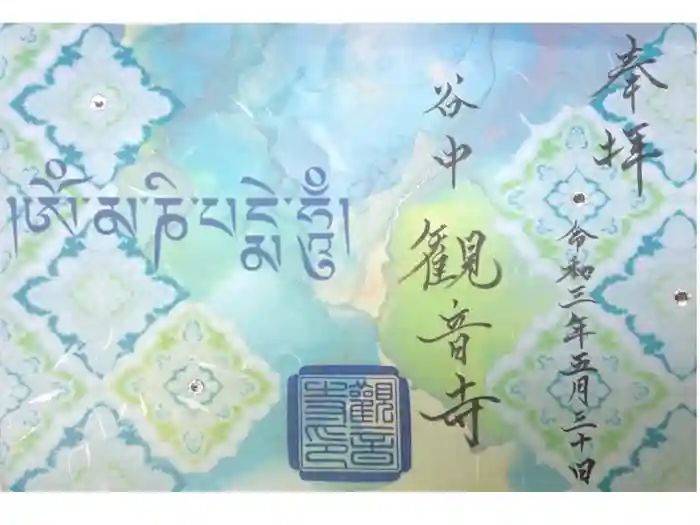 奉拝
令和三年五月三十日
谷中
観音寺
།ༀ་མ་ཎི་པདྨེ་ཧཱུྃ།
觀音寺印